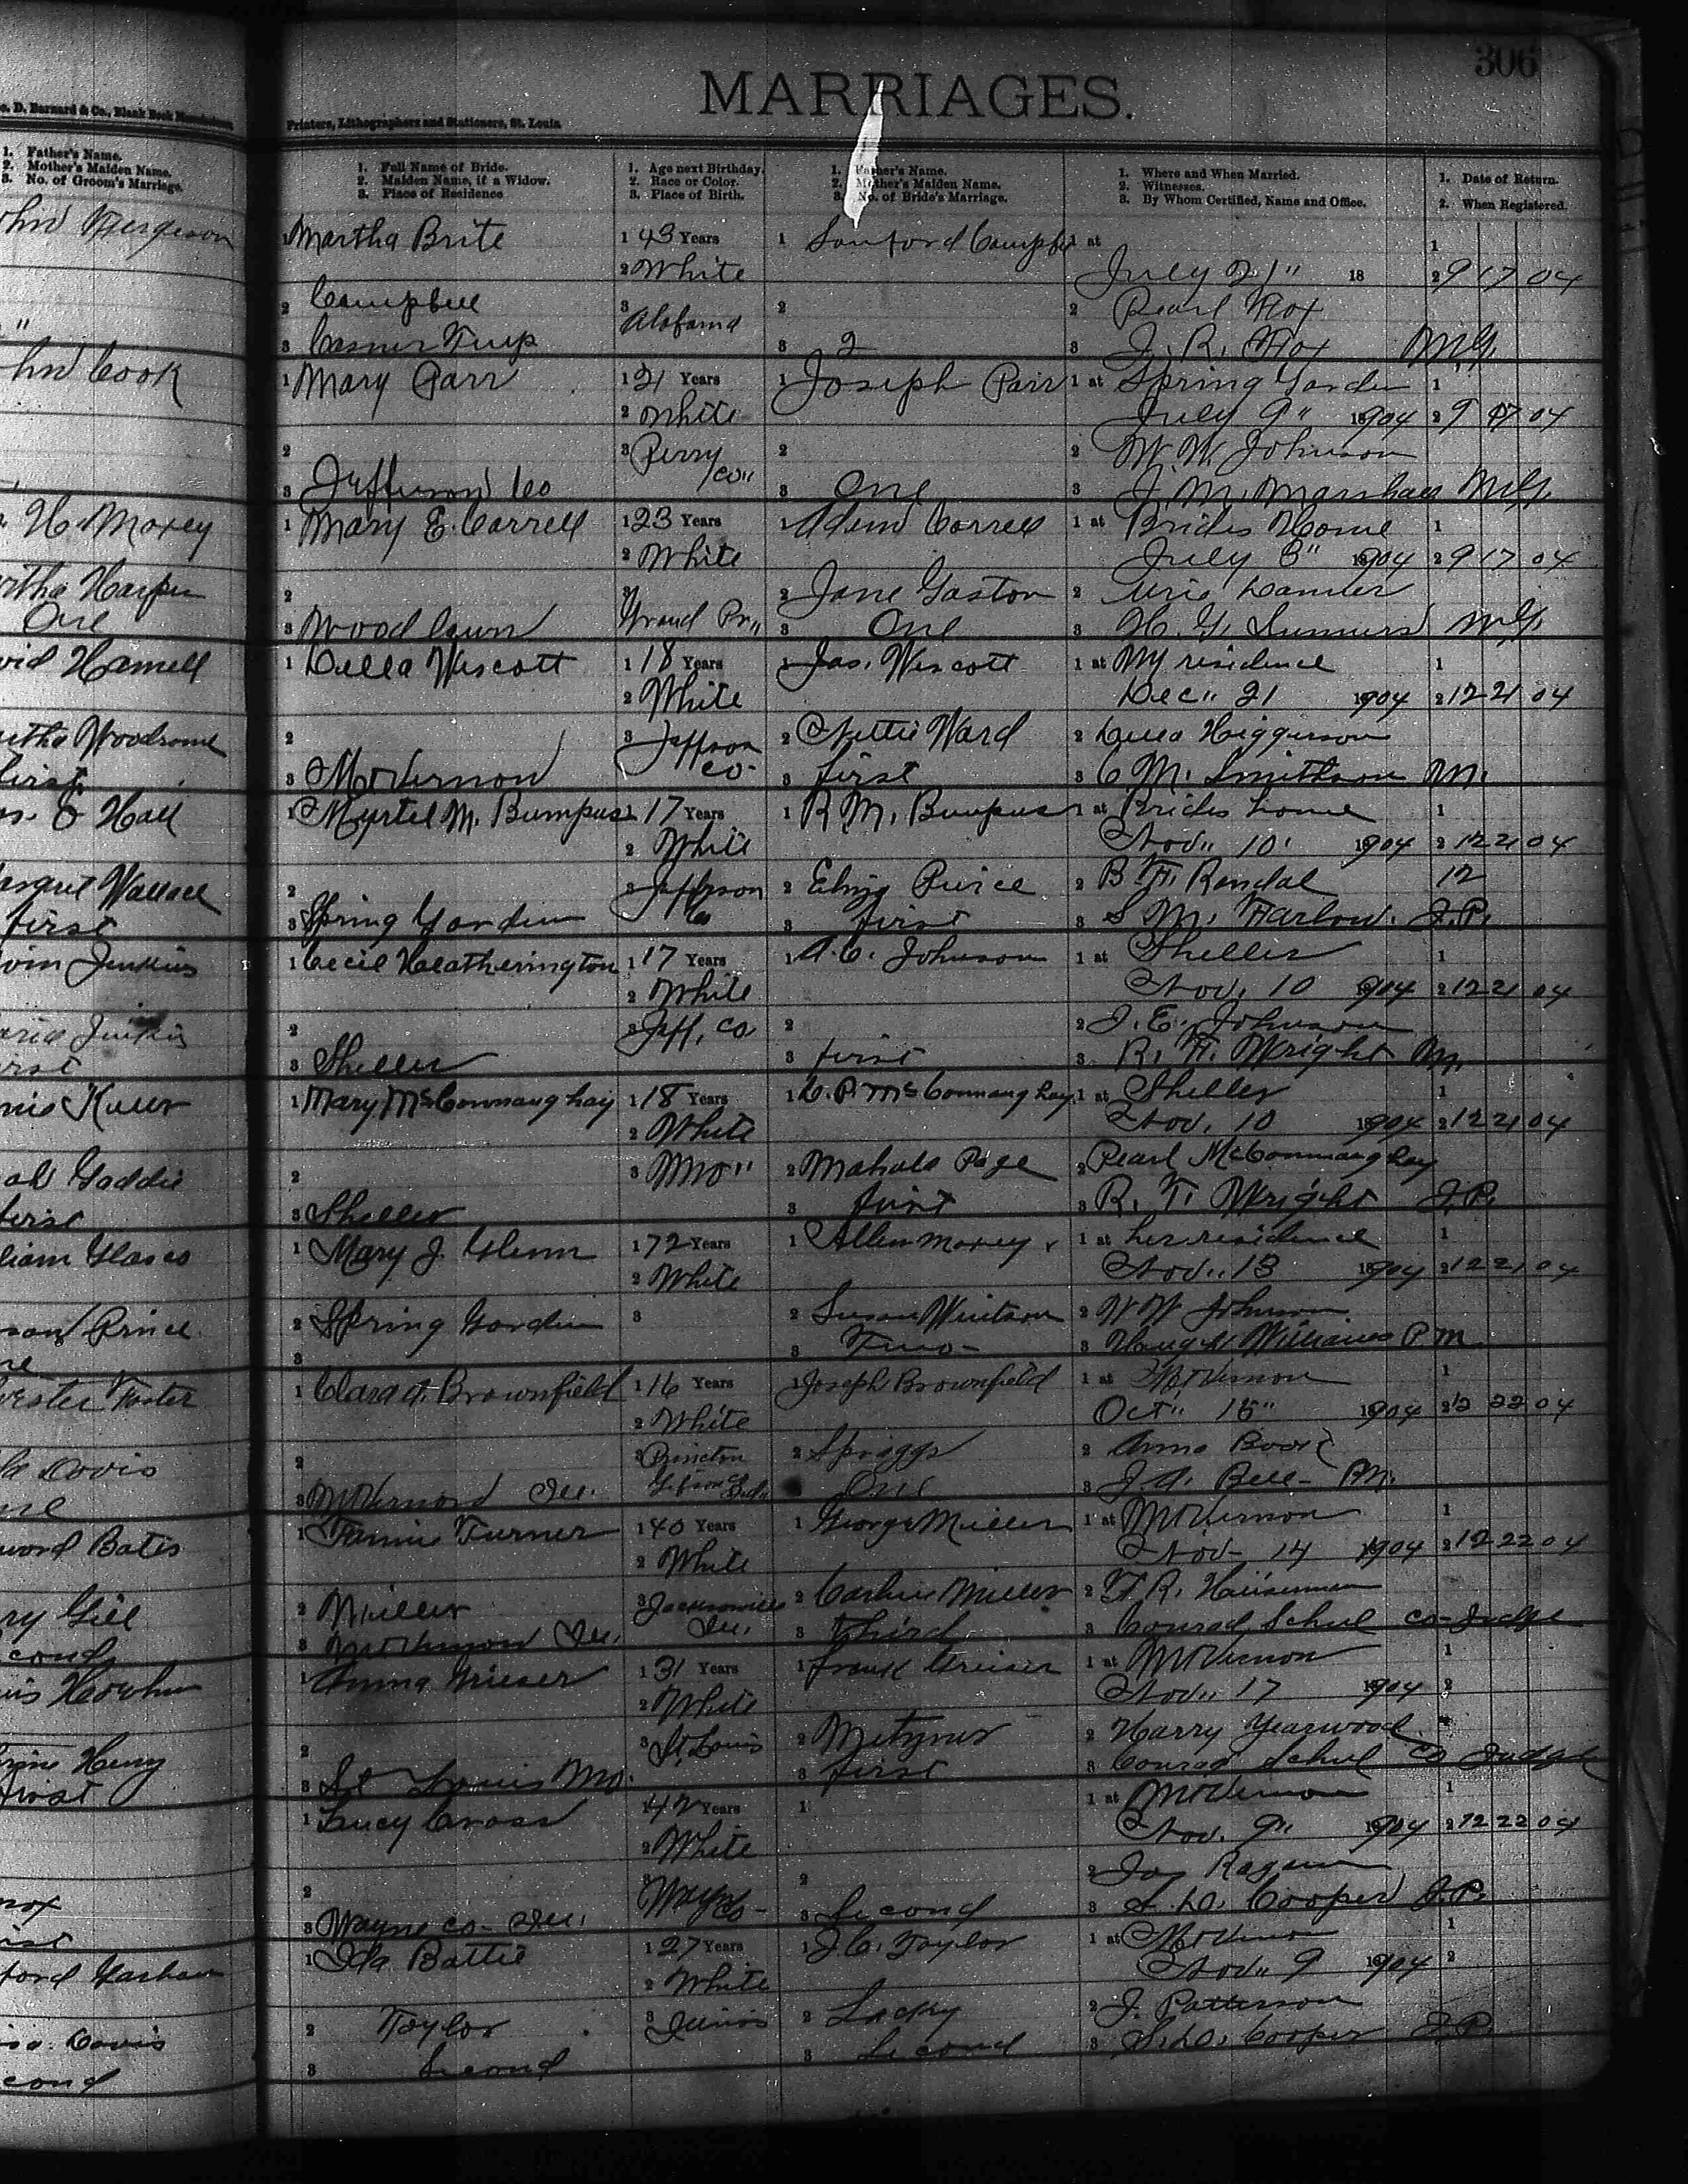 306
MARRIAGES.
D. Barnard & Co., Blank Book
Printers, Lithographers and Stationers, St. Louis.
1. Father's Name.
2. Mother's Maiden Name.
3. No. of Groom's Marriage.
1. Full Name of Bride.
2. Maiden Name, if a Widow.
3. Place of Residence
1. Age next Birthday.
2. Race or Color.
3. Place of Birth.
1. Father's Name.
2. Mother's Maiden Name.
3. No. of Bride's Marriage.
1. Where and When Married.
2. Witnesses.
3. By Whom Certified, Name and Office.
1. Date of Return.
2. When Registered.
1 Martha Brite 1 43 Years 1 Sanford 1 at 1
2 White July 21" 18 2 9 17 04
2 Campbell 3 Alabama 2 2 Pearl
3 3 2 3 J. R. M.G.
Cook 1 Mary Parr 1 21 Years 1 Joseph Parr 1 at Spring Garden 1
2 White July 9" 1904 2 9 17 04
2 3 Perry Co" 2 2 W. W. Johnson
3 Jefferson Co 3 One 3 J. M. Marshall M.G.
H. Maxey 1 Mary E. Carrell 1 23 Years 1 Adam Carrell 1 at Brides Home 1
2 White July 3" 1904 2 9 17 04
Harper 2 3 Grand Pr" 2 Jane Gaston 2
One 3 Woodlawn 3 One 3 H. G. M.G.
Harnell 1 Della Wescott 1 18 Years 1 Jas. Wescott 1 at My residence 1
2 White Dec" 21 1904 2 12 21 04
2 3 Jeffson Co. 2 Nettie Ward 2 Higgerson
first 3 Mt Vernon 3 first 3 C M. Smithson M.
Hall 1 Myrtel M. Bumpus 1 17 Years 1 R. M. Bumpus 1 at Brides home 1
2 White Nov" 10' 1904 2 12 21 04
Wallace 2 3 Jefferson Co 2 Pierce 2 B. F. Randal 12
first 3 Spring Garden 3 first 3 S. M. Farlow. J.P.
Jenkins 1 Cecil Heatherington 1 17 Years 1 A. C. Johnson 1 at Sheller 1
2 White Nov. 10 1904 2 12 21 04
2 3 Jeff. Co 2 2 J. E. Johnson
3 Sheller 3 first 3 R. T. Wright M.
1 Mary McConnaughay 1 18 Years 1 C. P. McConnaughay 1 at Sheller 1
2 White Nov. 10 1904 2 12 21 04
Gaddie 2 3 Mo" 2 Mahala Page 2 Pearl McConnaughay
first 3 Sheller 3 first 3 R. T. Wright J.P.
Glasco 1 Mary J. Glenn 1 72 Years 1 Allen Maxey 1 at her residence 1
2 White Nov" 13 1904 2 12 21 04
Prince 2 Spring Garden 3 2 Susan 2 W W Johnson
3 3 Two- 3 Williams P.M.
Foster 1 Clara A. Brownfield 1 16 Years 1 Joseph Brownfield 1 at Mt Vernon 1
2 White Oct" 15" 1904 2 12 22 04
Davis 2 3 Princton Gibson Co 2 Spriggs 2 Anna
3 Mt Vernon Ill. One 3 J. A. Bell- P.M.
Bates 1 Fannie Turner 1 40 Years 1 George Miller 1 at Mt Vernon 1
2 White Nov- 14 1904 2 12 22 04
Gill 2 Miller 3 Jacksonville Ill. 2 Miller 2 F. R.
3 Mt Vernon Ill. 3 third 3 Conrad Schul Co-Judge
1 Anna Grieser 1 31 Years 1 Frank Grieser 1 at Mt Vernon 1
2 White Nov" 17 1904 2
Henry 2 3 St. Louis 2 2 Harry Yearwood
first 3 St Louis Mo. 3 first 3 Conrad Schul Co Judge
1 Lucy Cross 1 42 Years 1 1 at Mt Vernon 1
2 White Nov. 9" 1904 2 12 22 04
2 3 Wayne Co- 2 2
3 Wayne Co- Ill. 3 Second 3 Cooper J.P.
1 Ida Battie 1 27 Years 1 J. C. Taylor 1 at Mt Vernon 1
2 White Nov" 9 1904 2
Davis 2 Taylor 3 Illinois 2 Lacky 2 J. Patterson
3 Second 3 Second 3 Cooper J.P.